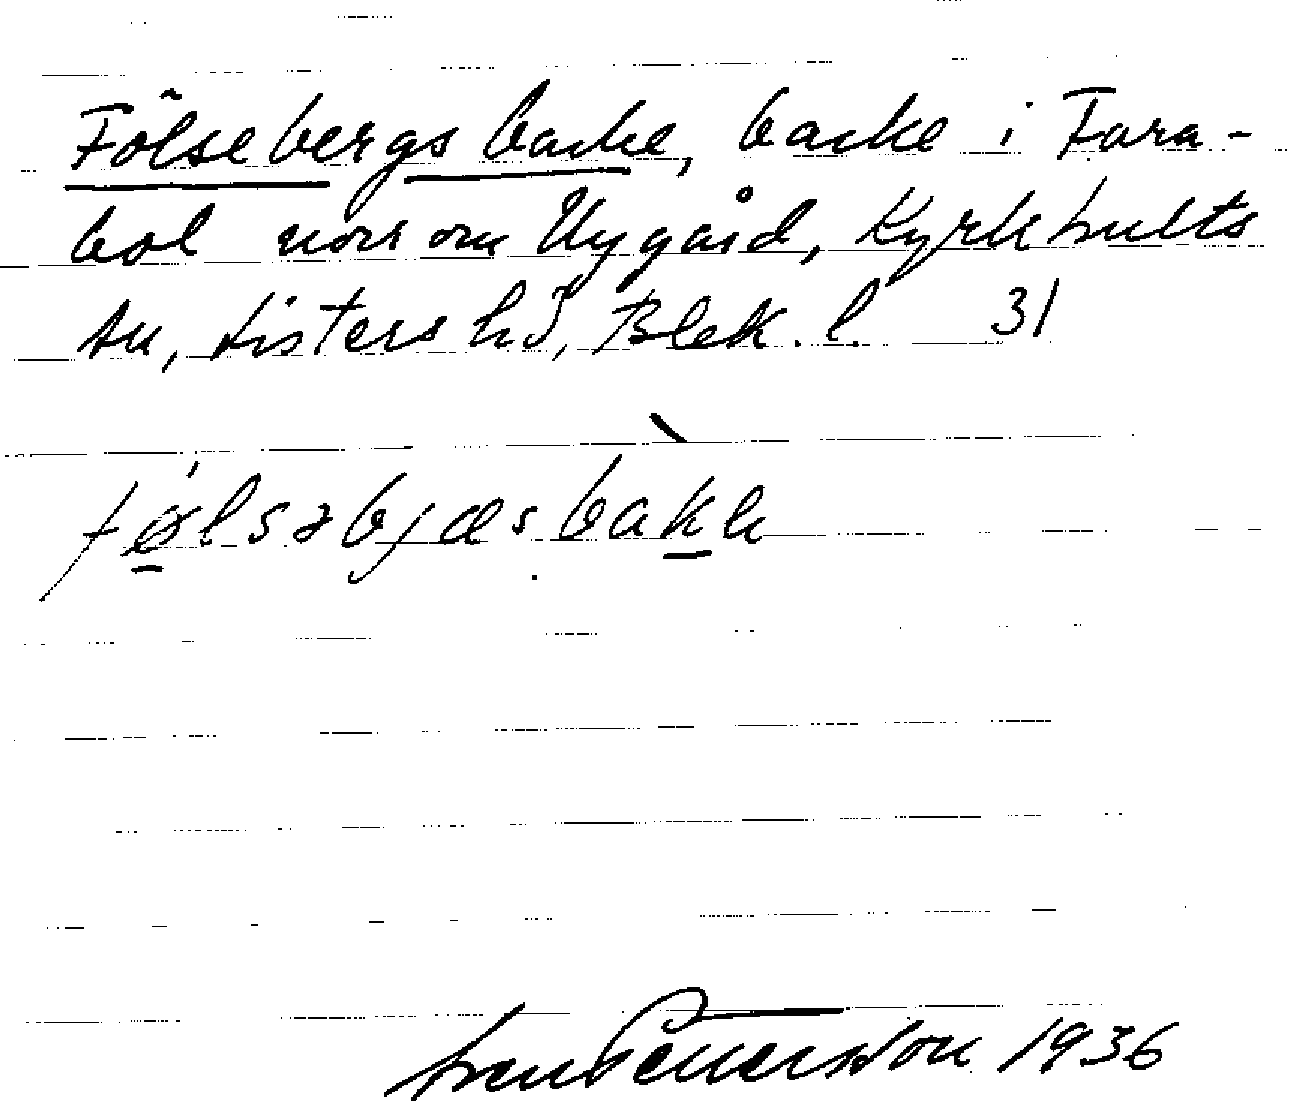 Fölsebergs backe, backe i Fara-
bol norr om Nygård, Kyrkhults
sn, Listers hd, Blek. l. 31
fǿlsəbjæsbàka
Sven Pettersson 1936